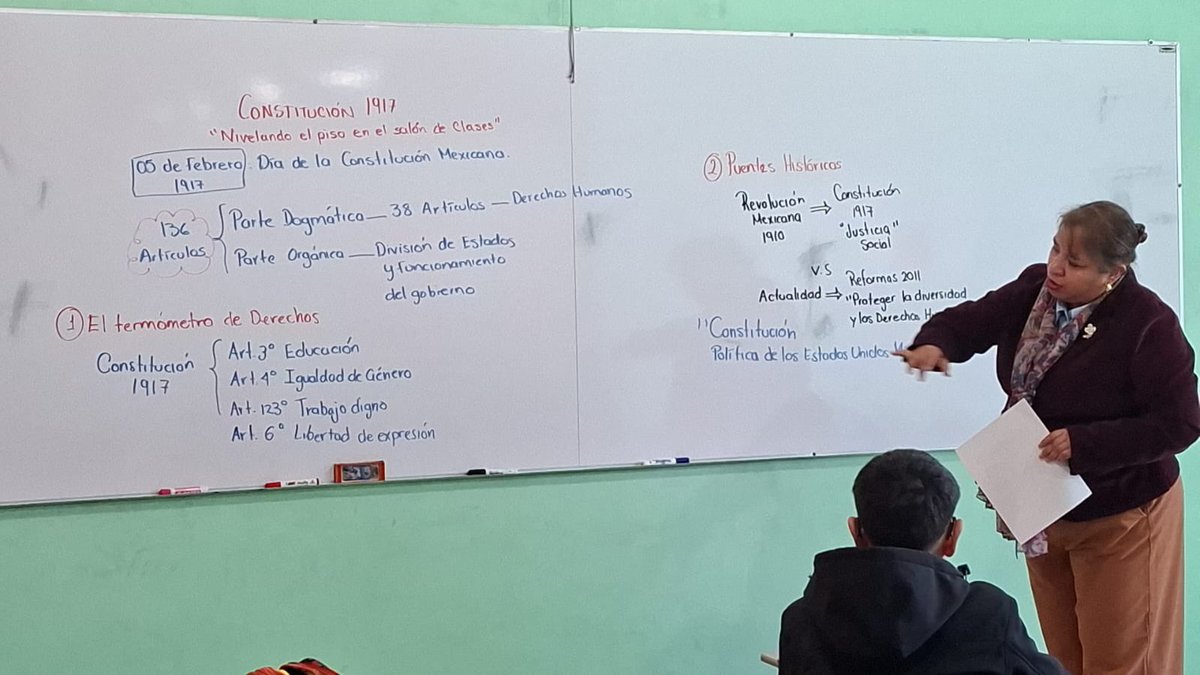 CONSTITUCIÓN 1917
"Nivelando el piso en el salón de clases"
05 de Febrero: Día de la Constitución Mexicana.
1917
136 Artículos
Parte Dogmática — 38 Artículos — Derechos Humanos
Parte Orgánica — División de Estados
y funcionamiento
del gobierno
① El termómetro de Derechos
Constitución
1917
Art. 3° Educación
Art. 4° Igualdad de Género
Art. 123° Trabajo digno
Art. 6° Libertad de expresión
② Puentes Históricos
Revolución
Mexicana
1910
⇒
Constitución
1917
"Justicia"
Social
V.S
Actualidad ⇒
Reformas 2011
"Proteger la diversidad
y los Derechos
"Constitución
Política de los Estados Unidos